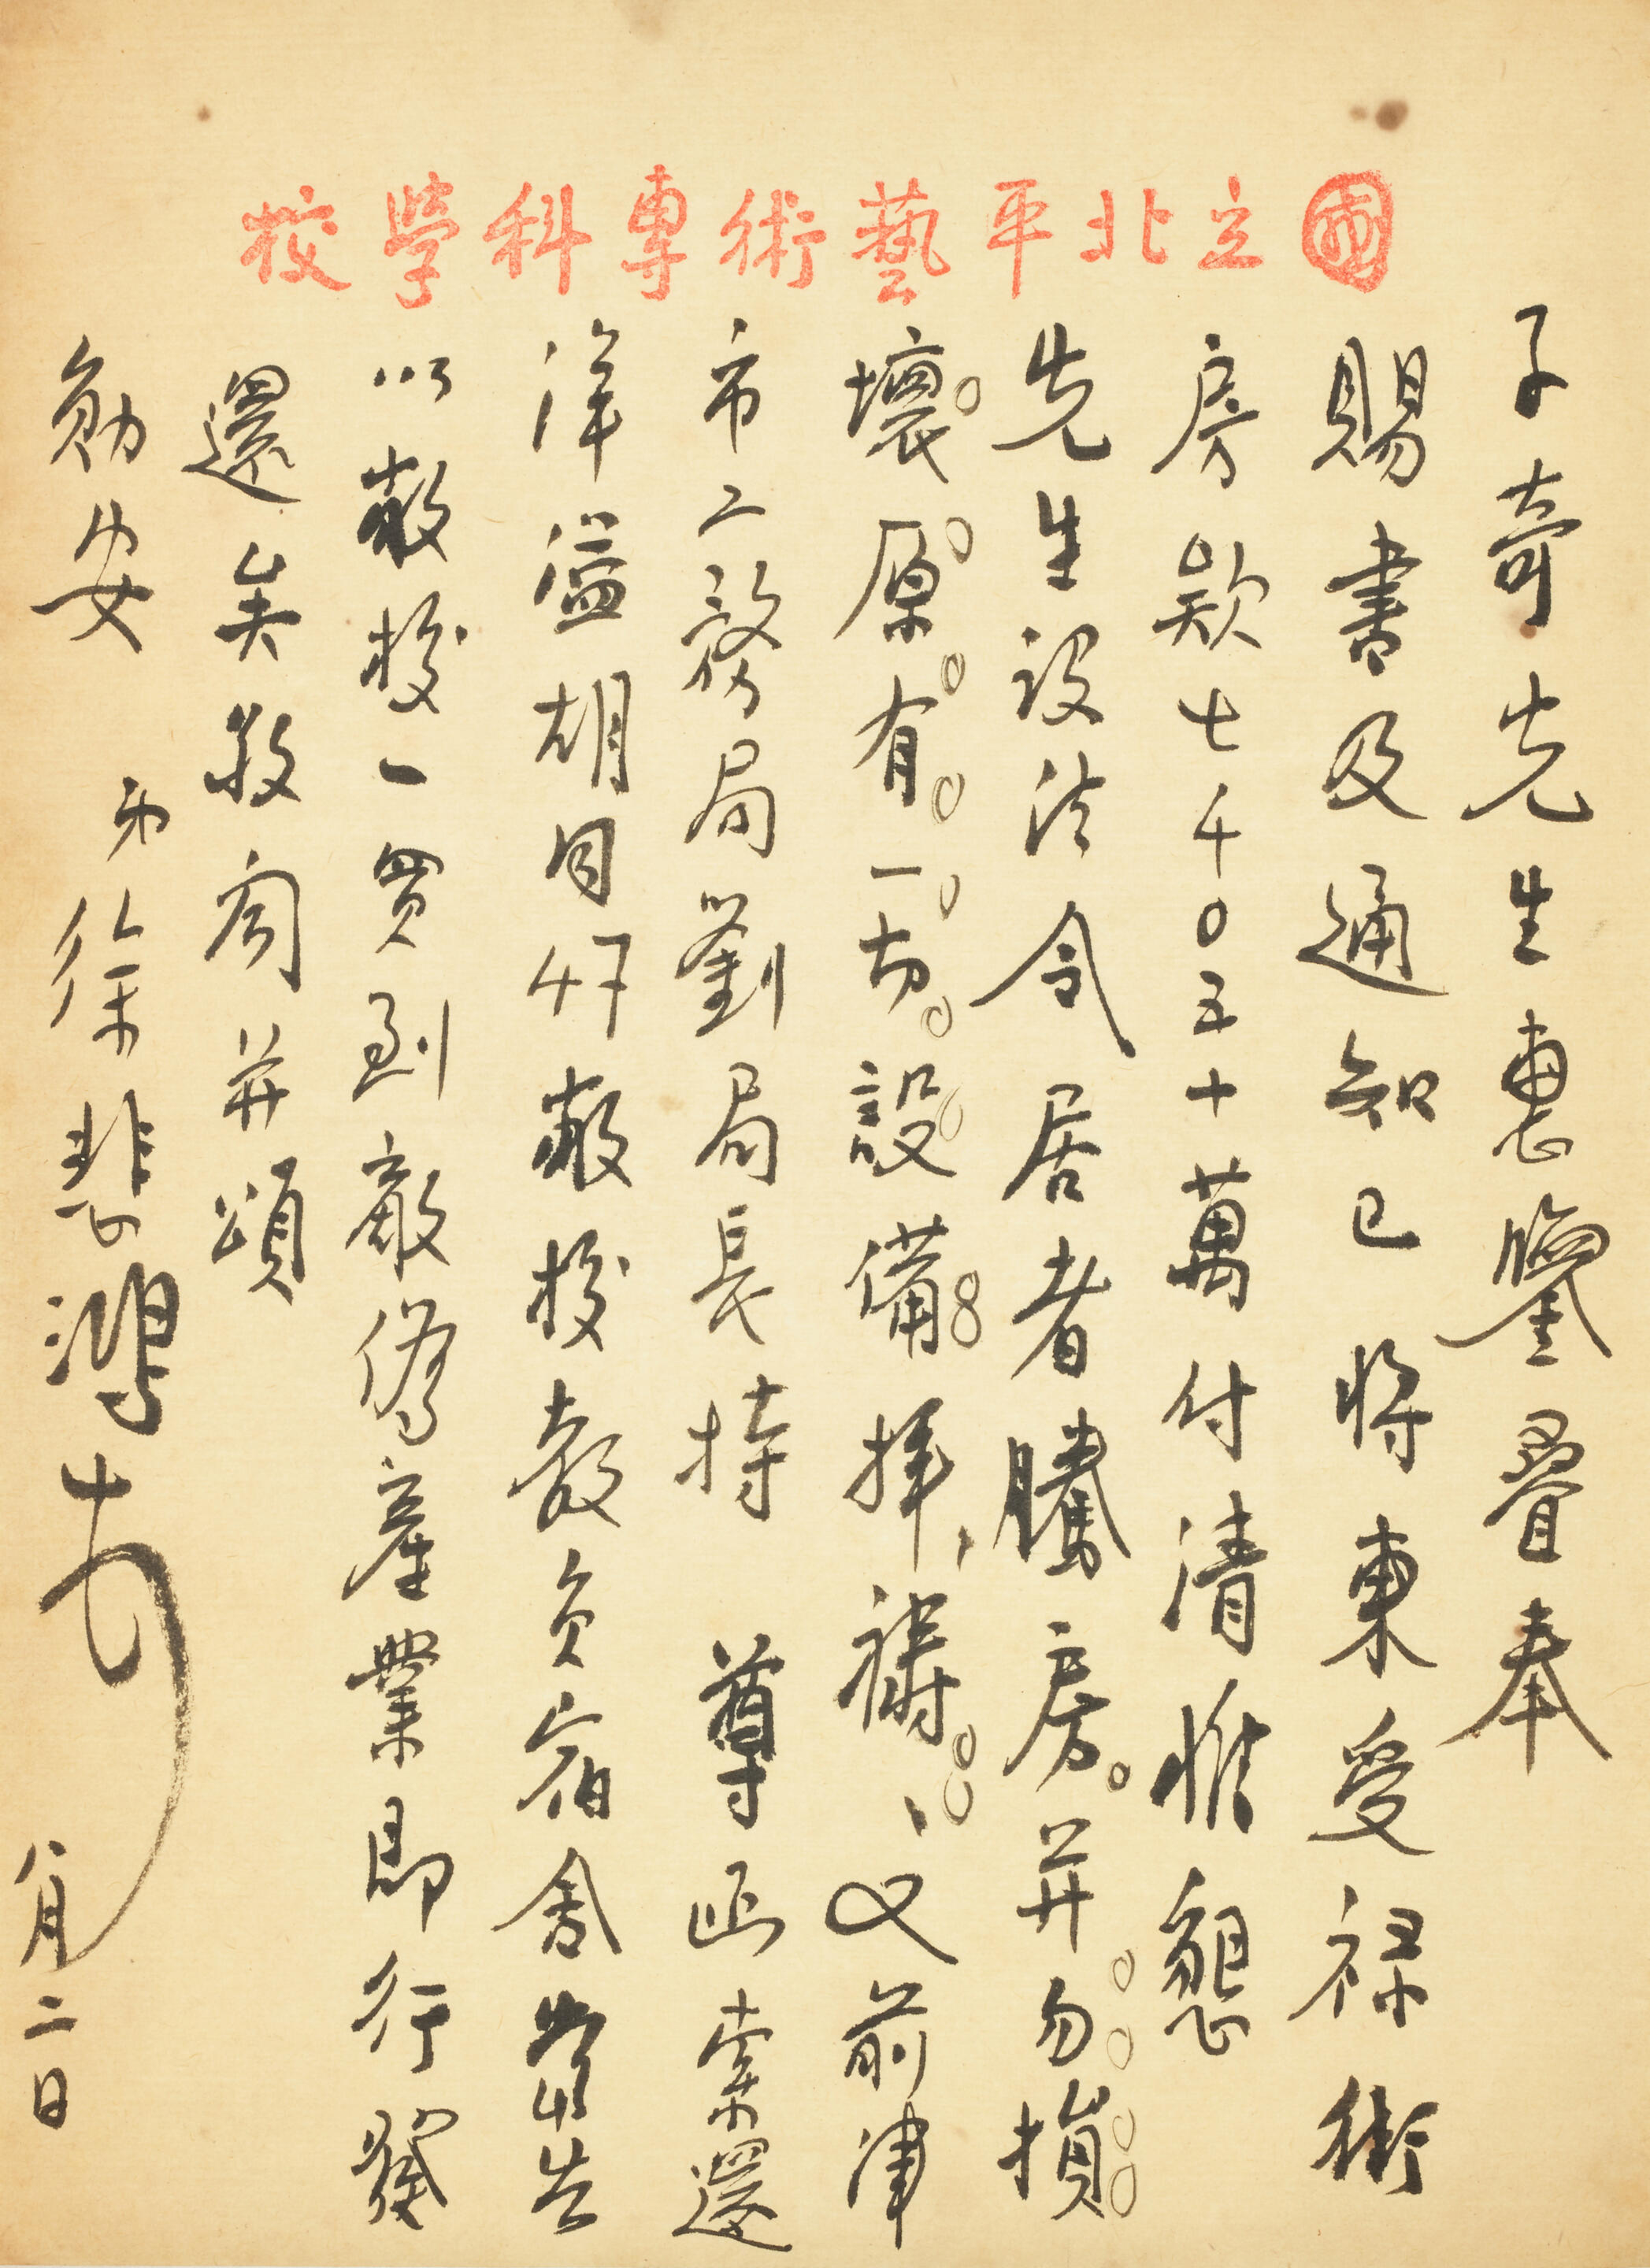 國立北平藝術專科學校
子奇先生惠鑒疊奉
賜書及通知已將東受祿街
房款七千〇五十萬付清惟懇
先生設法令居者騰房并勿損
壞原有一切設備拜禱、又前津
市工務局劉局長持 尊函索還
洋溢胡同47敝校教負宿舍嘗告
以敝校一買到敵偽產業即行發
還矣敬布并頌
勛安
弟徐悲鴻
八月二日